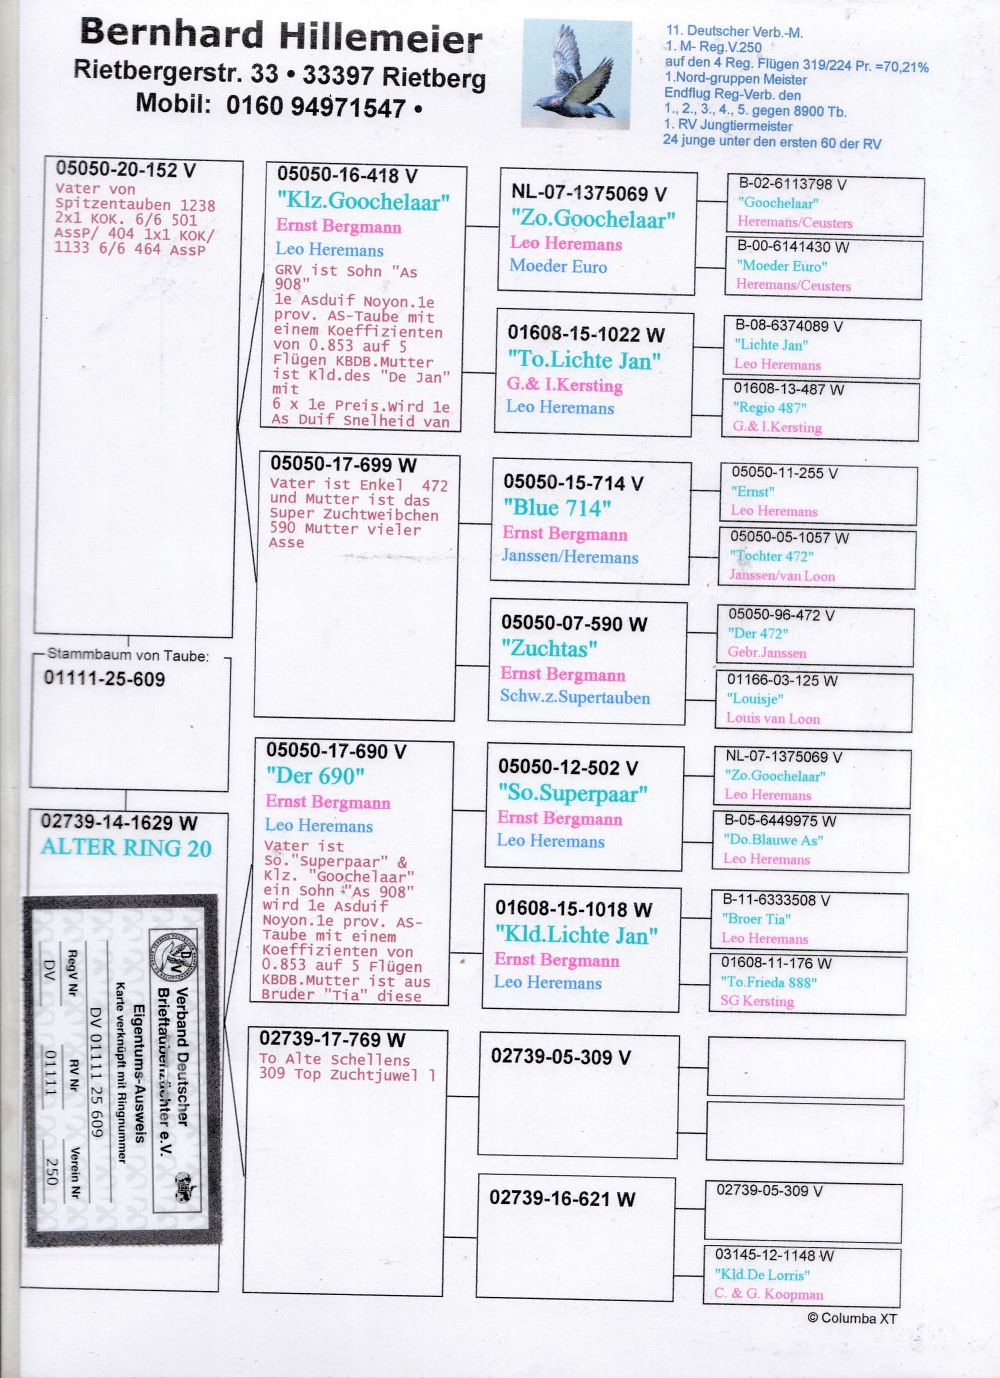 Bernhard Hillemeier
Rietbergerstr. 33 • 33397 Rietberg
Mobil: 0160 94971547 •
11. Deutscher Verb.-M.
1. M- Reg.V.250
auf den 4 Reg. Flügen 319/224 Pr. =70,21%
1.Nord-gruppen Meister
Endflug Reg-Verb. den
1., 2., 3., 4., 5. gegen 8900 Tb.
1. RV Jungtiermeister
24 junge unter den ersten 60 der RV
05050-20-152 V
Vater von
Spitzentauben 1238
2x1 KOK. 6/6 501
AssP/ 404 1x1 KOK/
1133 6/6 464 AssP
Stammbaum von Taube:
01111-25-609
02739-14-1629 W
ALTER RING 20
Verband Deutscher
Brieftaubenzüchter e.V.
Eigentums-Ausweis
Karte verknüpft mit Ringnummer
DV 01111 25 609
RegV Nr
RV Nr
Verein Nr
DV
01111
250
05050-16-418 V
"Klz.Goochelaar"
Ernst Bergmann
Leo Heremans
GRV ist Sohn "As
908"
1e Asduif Noyon.1e
prov. AS-Taube mit
einem Koeffizienten
von 0.853 auf 5
Flügen KBDB.Mutter
ist Kld.des "De Jan"
mit
6 x 1e Preis.Wird 1e
As Duif Snelheid van
05050-17-699 W
Vater ist Enkel 472
und Mutter ist das
Super Zuchtweibchen
590 Mutter vieler
Asse
05050-17-690 V
"Der 690"
Ernst Bergmann
Leo Heremans
Vater ist
So."Superpaar" &
Klz. "Goochelaar"
ein Sohn "As 908"
wird 1e Asduif
Noyon.1e prov. AS-
Taube mit einem
Koeffizienten von
0.853 auf 5 Flügen
KBDB.Mutter ist aus
Bruder "Tia" diese
02739-17-769 W
To Alte Schellens
309 Top Zuchtjuwel l
NL-07-1375069 V
"Zo.Goochelaar"
Leo Heremans
Moeder Euro
01608-15-1022 W
"To.Lichte Jan"
G.& I.Kersting
Leo Heremans
05050-15-714 V
"Blue 714"
Ernst Bergmann
Janssen/Heremans
05050-07-590 W
"Zuchtas"
Ernst Bergmann
Schw.z.Supertauben
05050-12-502 V
"So.Superpaar"
Ernst Bergmann
Leo Heremans
01608-15-1018 W
"Kld.Lichte Jan"
Ernst Bergmann
Leo Heremans
02739-05-309 V
02739-16-621 W
B-02-6113798 V
"Goochelaar"
Heremans/Ceusters
B-00-6141430 W
"Moeder Euro"
Heremans/Ceusters
B-08-6374089 V
"Lichte Jan"
Leo Heremans
01608-13-487 W
"Regio 487"
G.& I.Kersting
05050-11-255 V
"Ernst"
Leo Heremans
05050-05-1057 W
"Tochter 472"
Janssen/van Loon
05050-96-472 V
"Der 472"
Gebr.Janssen
01166-03-125 W
"Louisje"
Louis van Loon
NL-07-1375069 V
"Zo.Goochelaar"
Leo Heremans
B-05-6449975 W
"Do.Blauwe As"
Leo Heremans
B-11-6333508 V
"Broer Tia"
Leo Heremans
01608-11-176 W
"To.Frieda 888"
SG Kersting
02739-05-309 V
03145-12-1148 W
"Kld.De Lorris"
C. & G. Koopman
© Columba XT